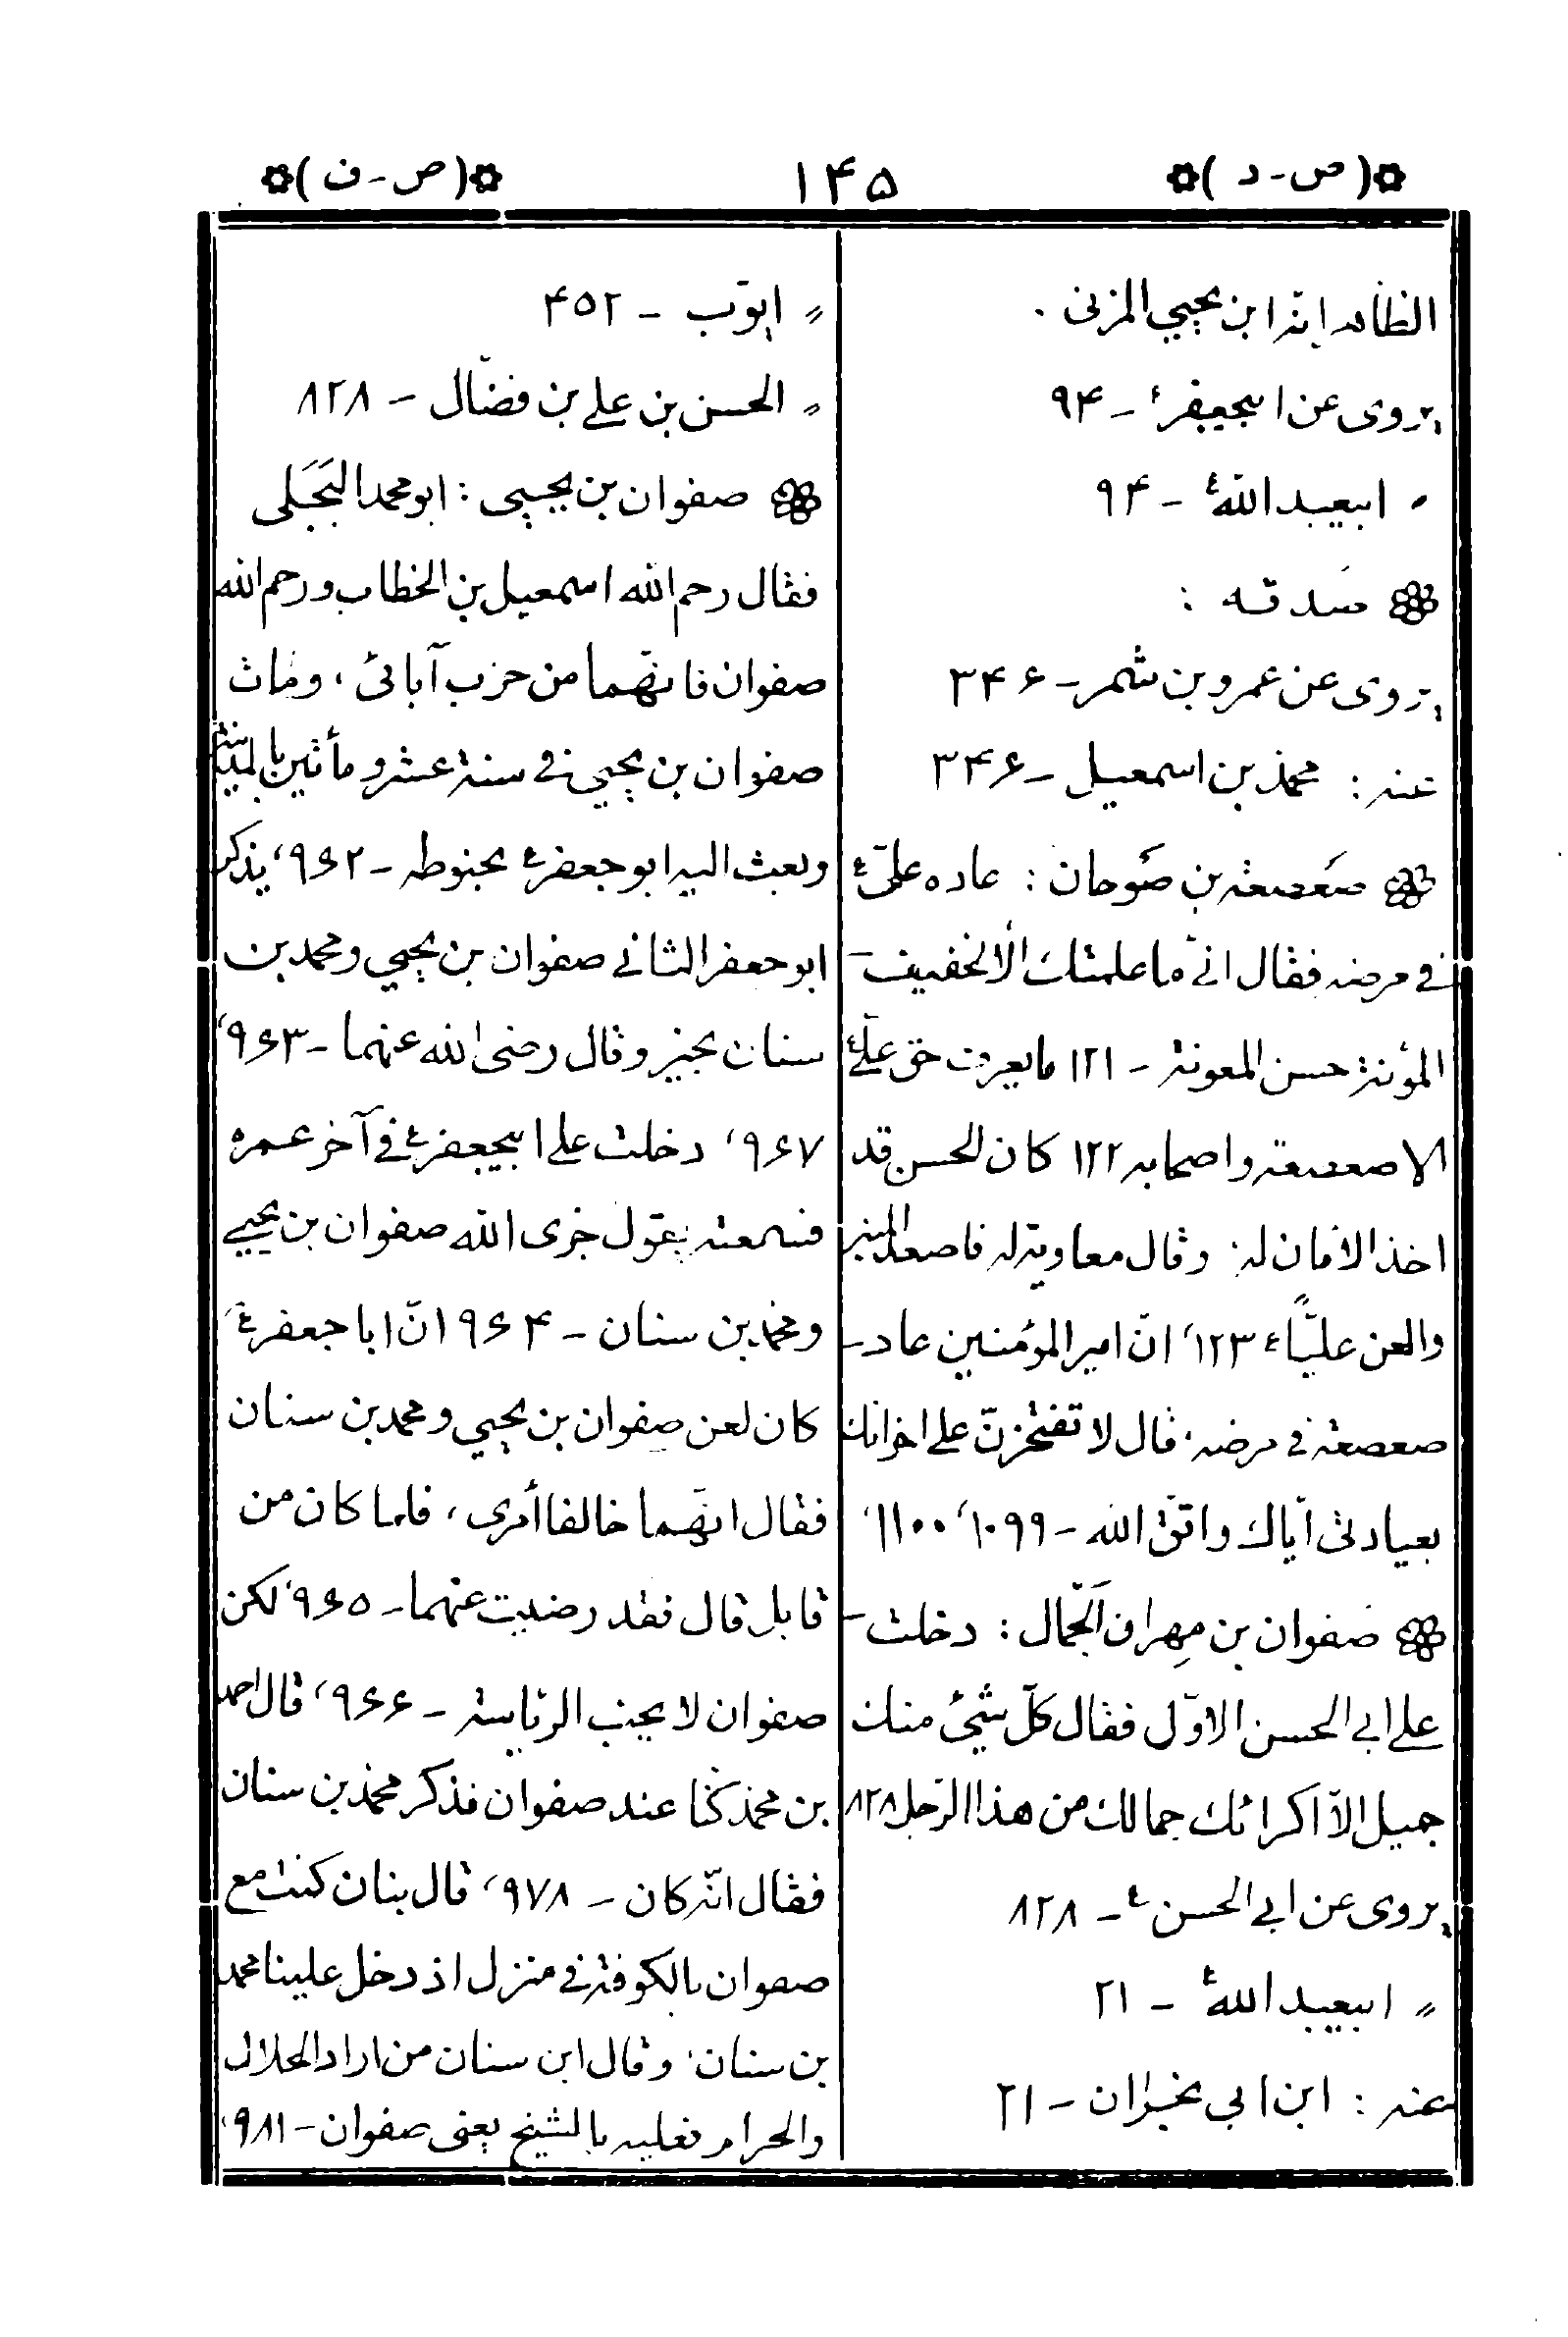 ❁(ص-د)❁ ۱۴۵ ❁(ص-ن)❁
الظاهر انه ابن يحيى المزنى .
يروى عن ابيجعفرؑ - ۹۴
〃 ابيعبد اللهؑ - ۹۴
❁ صدقه :
يروى عن عمرو بن شمر - ۳۴۶
عنه : محمد بن اسمعيل - ۳۴۶
❁ صَعصعة بن صَوحان : عاده علىّؑ
فى مرضه فقال انّى ما علمتك الّا لخفيف
المؤنة حسن المعونة - ۱۲۱ ما يعرف حق علىّؑ
الا صعصعة واصحابه ۱۲۲ كان الحسن قد
اخذ الامان له، وقال معاوية له فاصعد المنبر
والعن عليّاًؑ ۱۲۳، انّ امير المؤمنين عاد
صعصعة فى مرضه، قال لا تفتخرنّ على اخوانك
بعيادتى ايّاك واتّق الله - ۱۰۹۹، ۱۱۰۰،
❁ صَفوان بن مِهران الجَمّال : دخلت
على ابى الحسن الاوّل فقال كلّ شىء منك
جميل الاّ اكرائك جمالك من هذا الرّجل ۸۲۸
يروى عن ابى الحسنؑ - ۸۲۸
〃 ابيعبد اللهؑ - ۲۱
عنه : ابن ابى نجران - ۲۱
〃 ايّوب - ۴۵۲
〃 الحسن بن على بن فضّال - ۸۲۸
❁ صفوان بن يحيى : ابو محمد البَجَلى
فقال رحم الله اسمعيل بن الخطاب ورحم الله
صفوان فانّهما من حزب آبائى، ومات
صفوان بن يحيى فى سنة عشر ومأتين بالمدينة
وبعث اليه ابو جعفرؑ بحنوطه - ۹۶۲، يذكر
ابو جعفر الثانى صفوان بن يحيى ومحمد بن
سنان بخير وقال رضى الله عنهما - ۹۶۳،
۹۶۷، دخلت على ابيجعفرؑ فى آخر عمره
فسمعته يقول جزى الله صفوان بن يحيى
ومحمد بن سنان - ۹۶۴ انّ ابا جعفرؑ
كان لعن صفوان بن يحيى ومحمد بن سنان
فقال انّهما خالفا أمرى، فلما كان من
قابل قال فقد رضيت عنهما - ۹۶۵، لكن
صفوان لا يحب الرئاسة - ۹۶۶، قال احمد
بن محمد كنّا عند صفوان فذكر محمد بن سنان
فقال انّه كان - ۹۷۸، قال بنان كنت مع
صفوان بالكوفة فى منزل اذ دخل علينا محمد
بن سنان، وقال ابن سنان من اراد الحلال
والحرام فعليه بالشيخ يعنى صفوان - ۹۸۱،